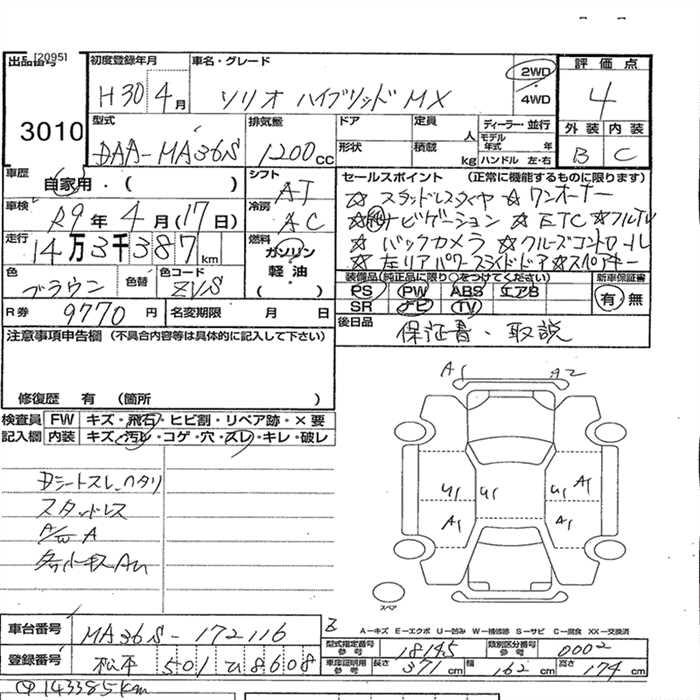 出品番号 [20951
3010
初度登録年月
H30年4月
車名・グレード
ソリオ ハイブリッド MX
2WD
4WD
評価点
4
外装 内装
B C
型式
DAA-MA36S
排気量
1200cc
ドア
形状
定員 人
積載 kg
ディーラー・並行
モデル年式 年
ハンドル 左・右
車歴
自家用・( )
車検
R9年4月(17日)
走行
14万3千387km
色
ブラウン
色替
色コード
ZVS
シフト
AT
冷房
AC
燃料
ガソリン
軽油
・( )
セールスポイント (正常に機能するものに限ります)
☆ スタッドレスタイヤ ☆ ワンオーナー
☆ 純ナビゲーション ☆ ETC ☆フルTV
☆ バックカメラ ☆ クルーズコントロール
☆ 左リアパワースライドドア ☆スペアキー
装備品(純正品に限り○をつけてください)
PS PW ABS エアB
SR ナビ TV
新車保証書
有・無
R券 9770円
名変期限 月 日
後日品
保証書・取説
注意事項申告欄 (不具合内容等は具体的に記入して下さい)
修復歴 有 (箇所 )
検査員記入欄
FW キズ・飛石・ヒビ割・リペア跡・×要
内装 キズ・汚レ・コゲ・穴・スレ・キレ・破レ
Dシートスレ、ヘタリ
スタッドレス
A/W A
A1 A2
U1 U1 U1 A1
A1 A1
スペア
A-キズ E-エクボ U-凹み W-補修跡 S-サビ C-腐食 XX-交換済
車台番号
MA36S-172116
登録番号
松本 501 ひ 8608
型式指定番号 参考 18145
類別区分番号 参考 0002
車庫証明用 参考 長さ 371cm 幅 162cm 高さ 174cm
143385km